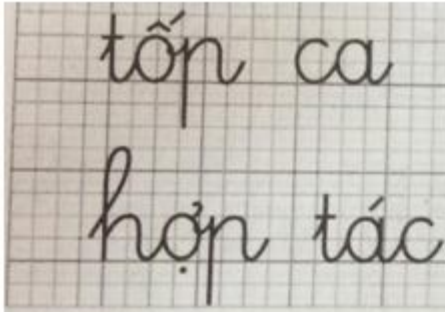 tốp ca
hợp tác